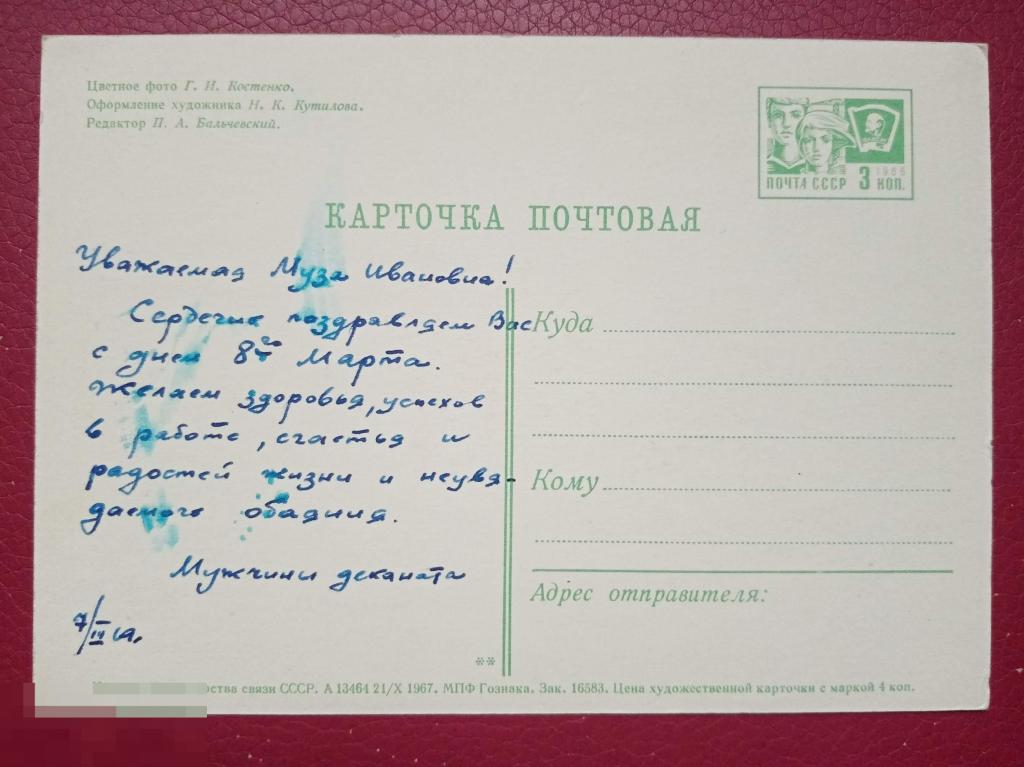 Цветное фото Г. И. Костенко.
Оформление художника Н. К. Кутилова.
Редактор П. А. Бальчевский.
ПОЧТА СССР 3 КОП.
1966
КАРТОЧКА ПОЧТОВАЯ
Уважаемая Муза Ивановна!
Сердечно поздравляем Вас
с днем 8го Марта.
Желаем здоровья, успехов
в работе, счастья и
радостей жизни и неувя-
даемого обаяния.
Мужчины деканата
7/III
Куда
Кому
Адрес отправителя:
**
связи СССР. А 13464 21/X 1967. МПФ Гознака. Зак. 16583. Цена художественной карточки с маркой 4 коп.